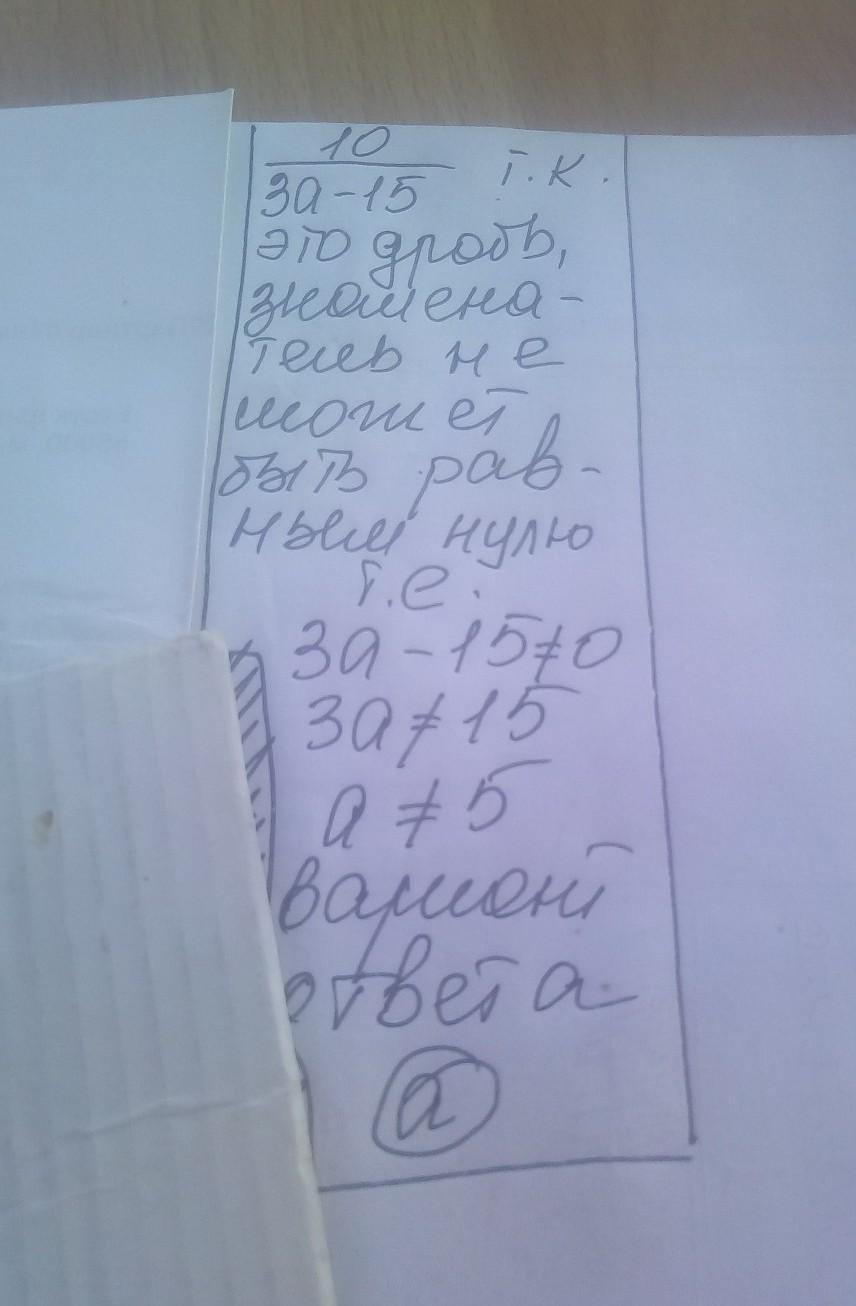 10
3а-15 т.к.
это дробь,
знамена-
тель не
может
быть рав-
ным нулю
т.е.
3а-15≠0
3а≠15
а ≠ 5
вариант
ответа
а